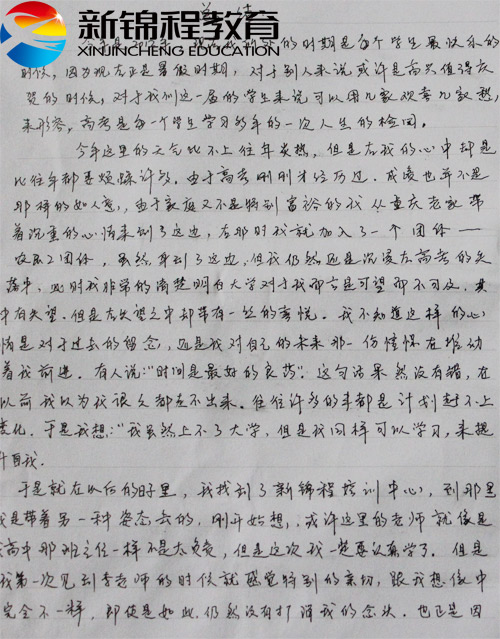 新锦程教育
XINJINCHENG EDUCATION
总结
今天是2012年 我们现在的时期是每个学生最快乐的
时候，因为现在正是暑假时期，对于别人来说或许是高兴值得庆
贺的时候，对于我们这一届的学生来说可以用几家欢喜几家愁，
来形容，高考是每一个学生学习多年的一次人生的检阅。
今年这里的天气比不上往年炎热，但是在我的心中却是
比往年都要烦躁许多。由于高考刚刚才经历过，成绩也并不是
那样的如人意，由于家庭又不是特别富裕的我从重庆老家带
着沉重的心情来到了这边，在那时我就加入了一个团体——
农民工团体，虽然身到了这边，但我仍然还是沉浸在高考的失
落中，此时我非常的清楚明白大学对于我那言是可望而不可及，其
中有失望，但是在失望之中却带有一丝的喜悦。我不知道这样的心
情是对于过去的留念，还是我对自己的未来那一份憧憬在推动
着我前进。有人说：“时间是最好的良药”。这句话果然没有错，在
以前我以为我很久都走不出来，往往许多的事都是计划赶不上
变化，于是我想：“我虽然上不了大学，但是我同样可以学习，来提
升自我。
于是就在以后的日子里，我找到了新锦程培训中心，到那里
我是带着另一种姿态去的，刚开始想，或许这里的老师就像是
我高中那班主任一样不是太负责，但是这次我一定要认真学了。但是
我第一次见到李老师的时候就感觉特别的亲切，跟我想像中
完全不一样，即使是如此仍然没有打消我的念头，也正是因